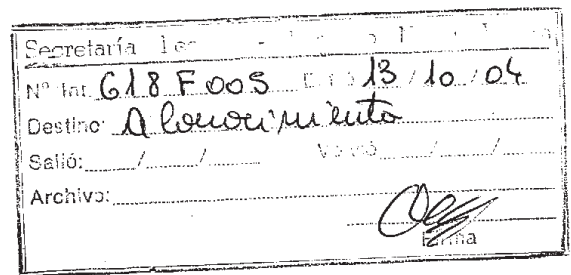 Secretaría
Nº Int. 618 F 005 13 / 10 / 04
Destino: A Conocimiento
Salió: / / Volvió / /
Archivo:
Firma